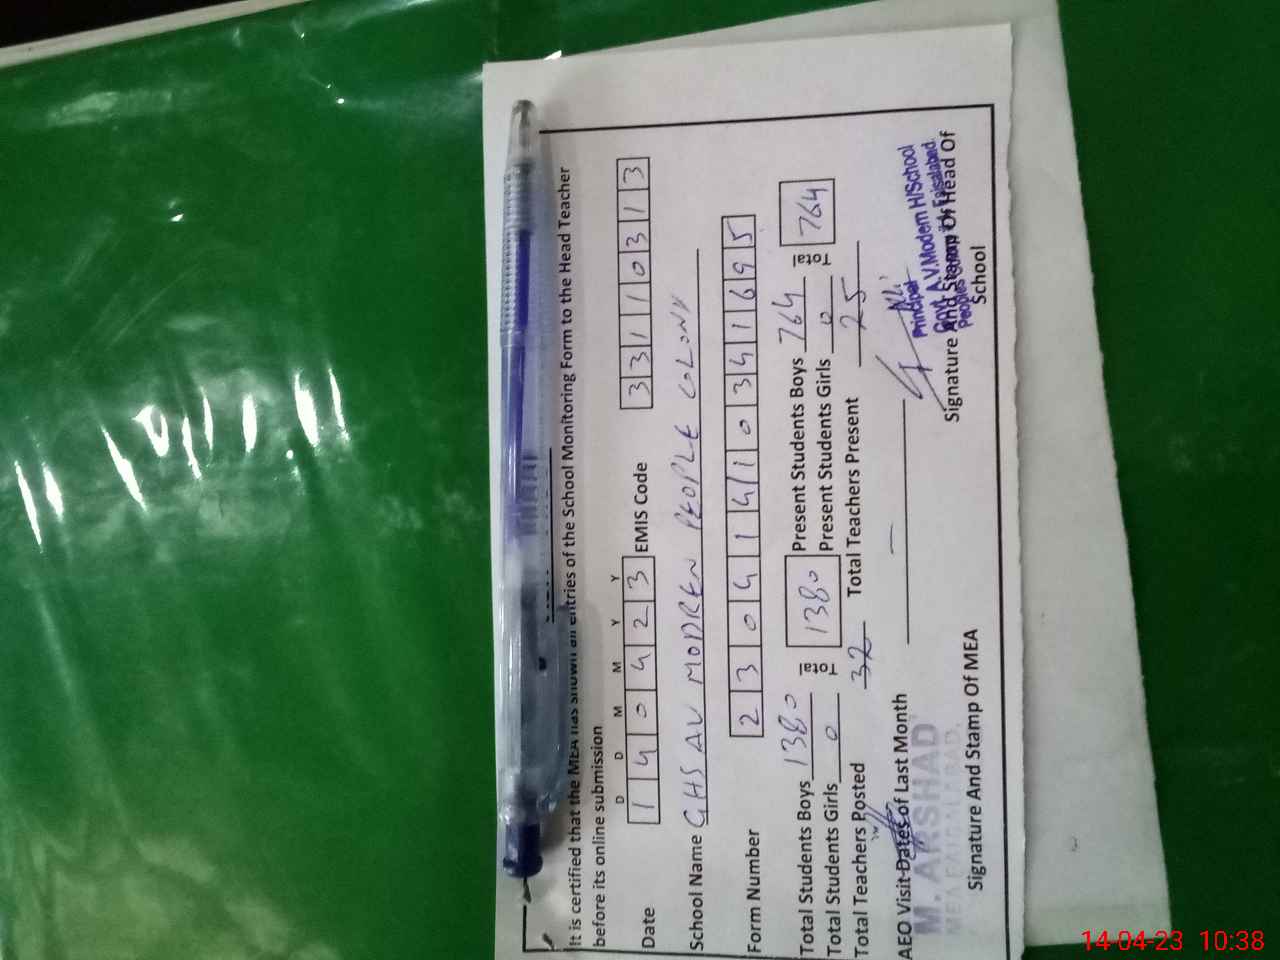 It is certified that the MEA has shown all entries of the School Monitoring Form to the Head Teacher
before its online submission
D D M M Y Y
Date 1 4 0 4 2 3 EMIS Code 3 3 1 1 0 3 1 3
School Name GHS AV MODREN PEOPLE COLONY
Form Number 2 3 0 4 1 4 1 0 3 4 1 6 9 5
Total Students Boys 1380 Total 1380 Present Students Boys 764 Total 764
Total Students Girls 0 Present Students Girls 0
Total Teachers Posted 32 Total Teachers Present 25
AEO Visit Dates of Last Month —
M. ARSHAD
MEA FAISALABAD.
Signature And Stamp Of MEA
Principal
Govt. A.V. Modern H/School
Peoples Faisalabad.
Signature And Stamp Of Head Of
School
14-04-23 10:38